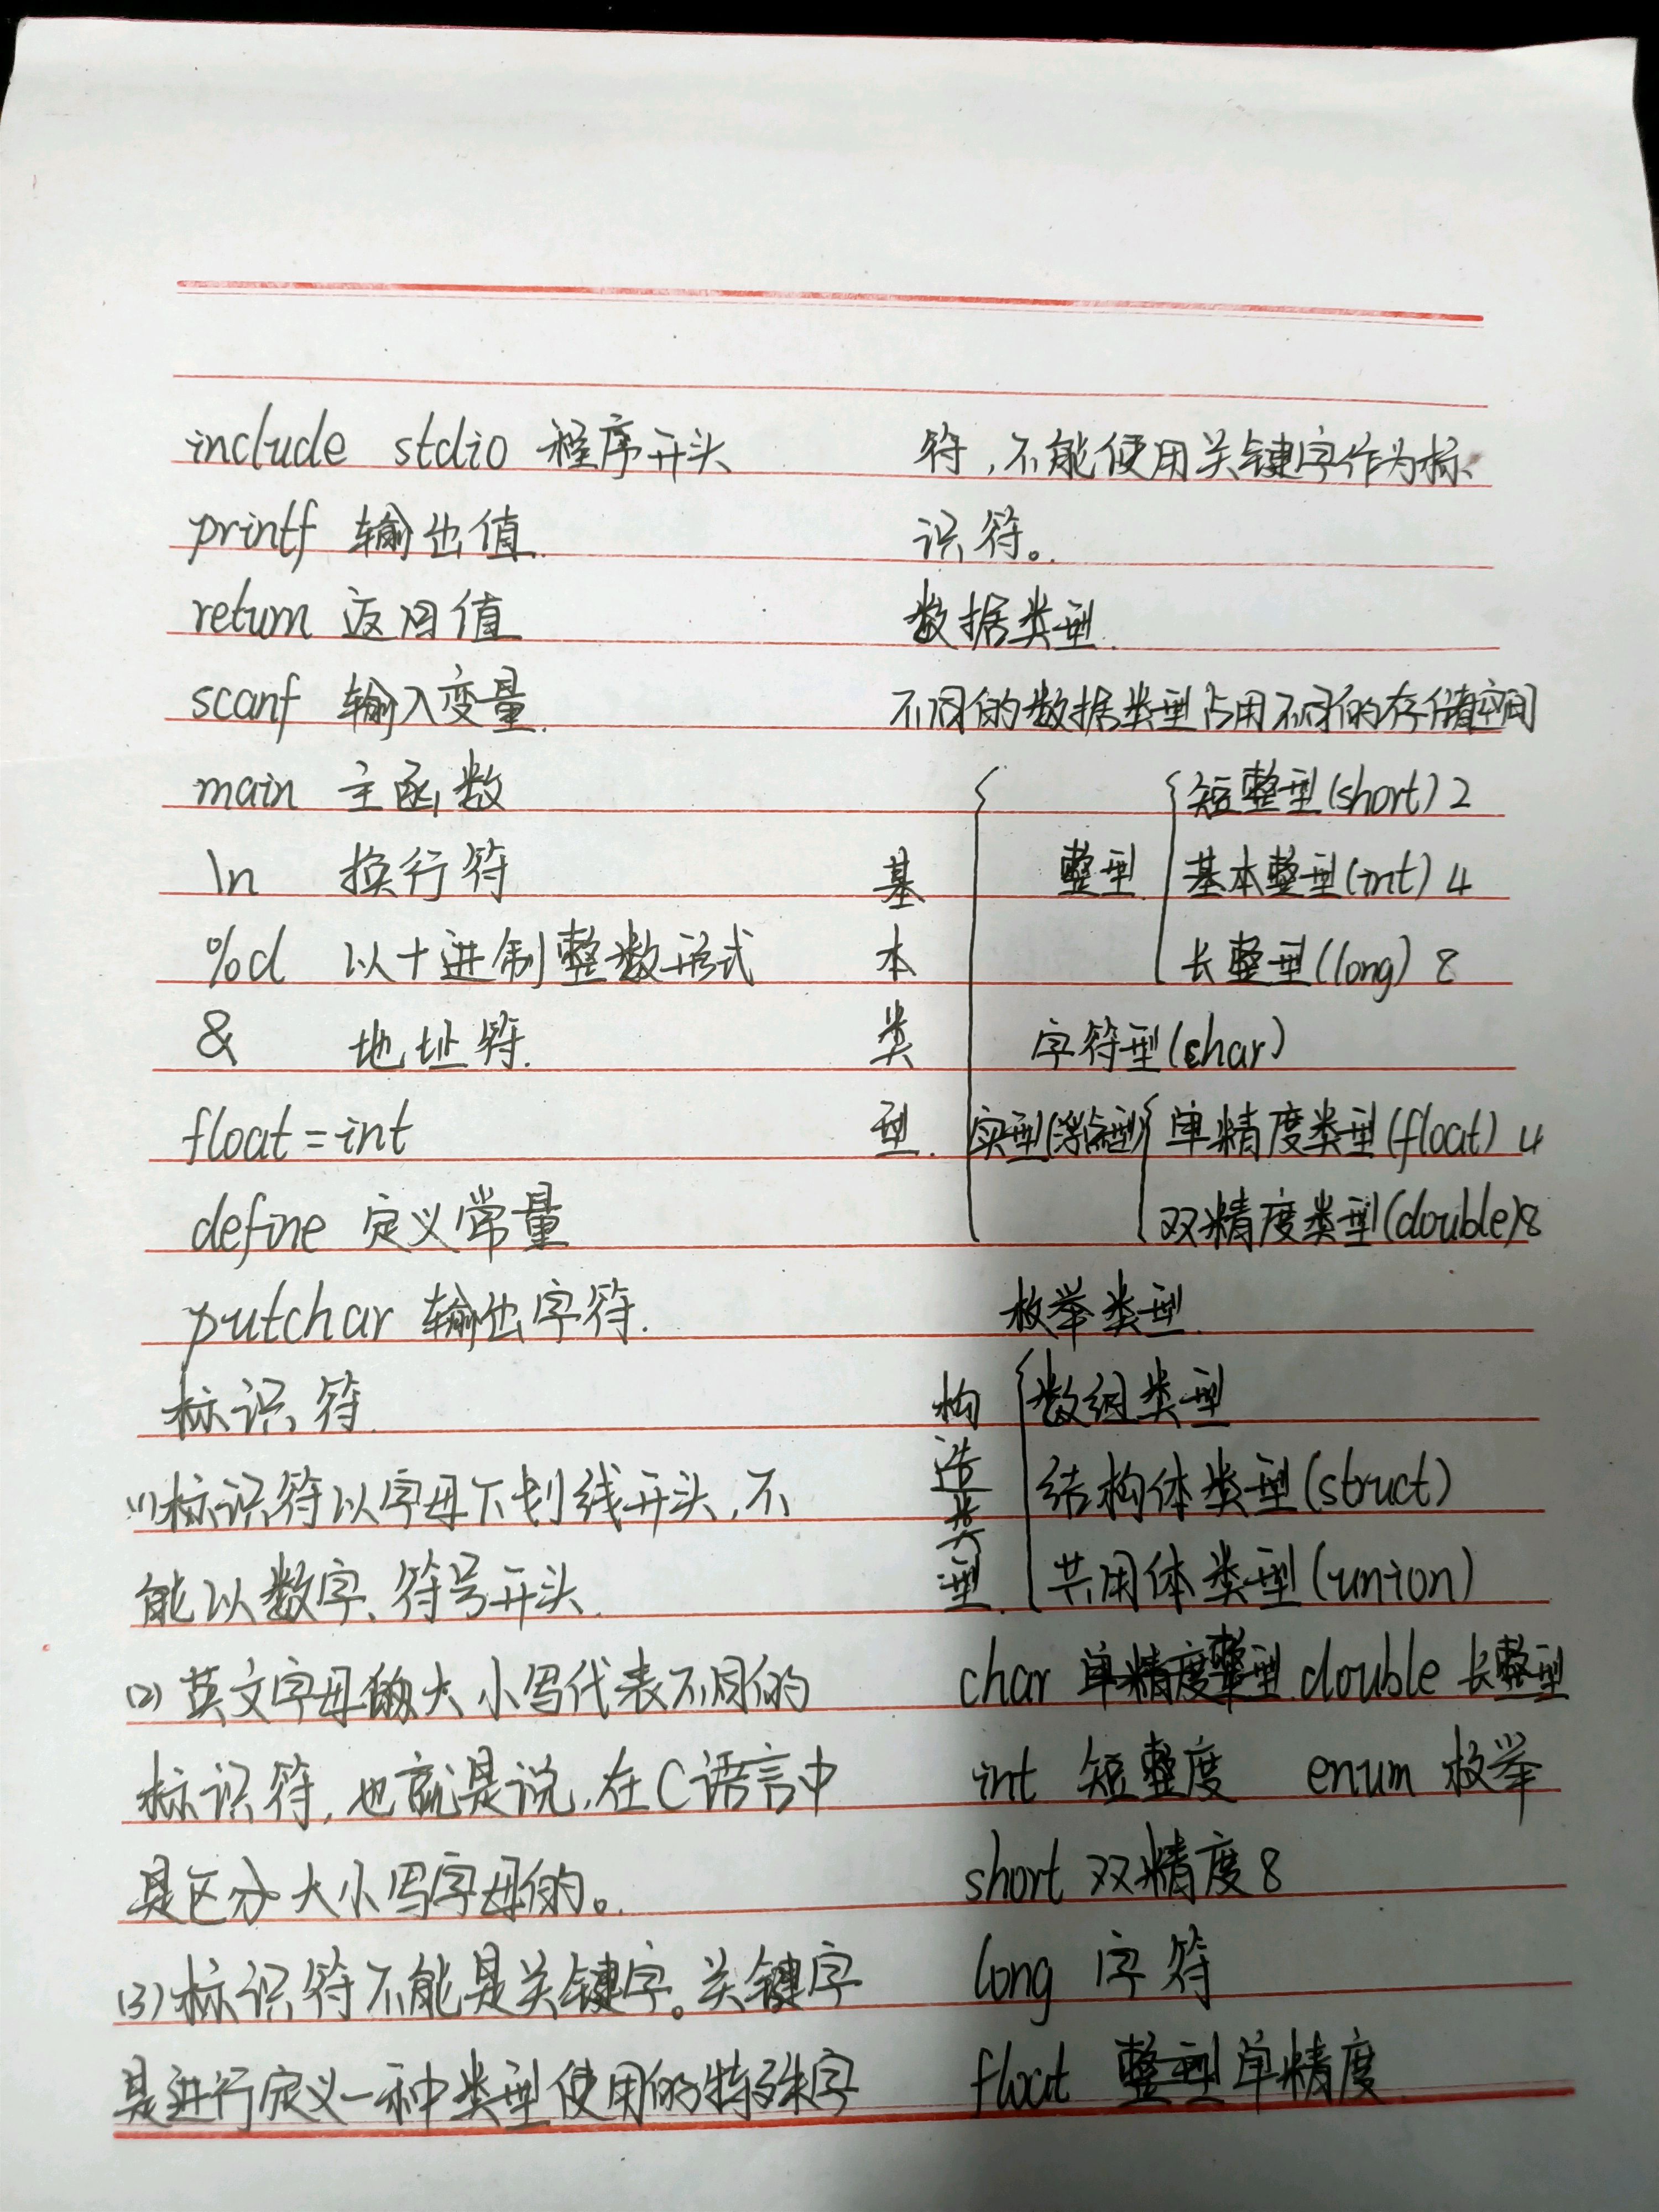 include stdio 程序开头
printf 输出值.
return 返回值
scanf 输入变量.
main 主函数
\n 换行符
%d 以十进制整数形式
& 地址符.
float=int
define 定义常量
putchar 输出字符.
标识符.
(1)标识符以字母下划线开头,不
能以数字、符号开头.
(2)英文字母的大小写代表不同的
标识符,也就是说,在C语言中
是区分大小写字母的。
(3)标识符不能是关键字。关键字
是进行定义一种类型使用的特殊字
符,不能使用关键字作为标
识符。
数据类型.
不同的数据类型占用不同的存储空间
基本类型.
整型
短整型(short) 2
基本整型(int) 4
长整型(long) 8
字符型(char)
实型(浮点型)
单精度类型(float) 4
双精度类型(double)8
枚举类型.
构造类型.
数组类型
结构体类型(struct)
共用体类型(union)
char 单精度整型 double 长整型
int 短整度 enum 枚举
short 双精度8
long 字符
float 整型单精度.